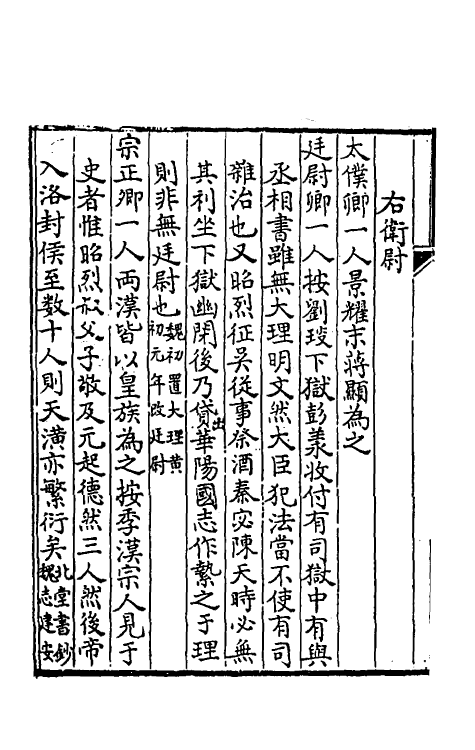 右衛尉
太僕卿一人景耀末蔣顯為之
廷尉卿一人按劉琰下獄彭羕收付有司獄中有與
丞相書雖無大理明文然大臣犯法當不使有司
雜治也又昭烈征吳從事祭酒秦宓陳天時必無
其利坐下獄幽閉後乃貸出華陽國志作縶之于理
則非無廷尉也魏初置大理黃初元年改廷尉
宗正卿一人兩漢皆以皇族為之按季漢宗人見于
史者惟昭烈叔父子敬及元起德然三人然後帝
入洛封侯至数十人則天潢亦繁衍矣北堂書鈔魏志建安